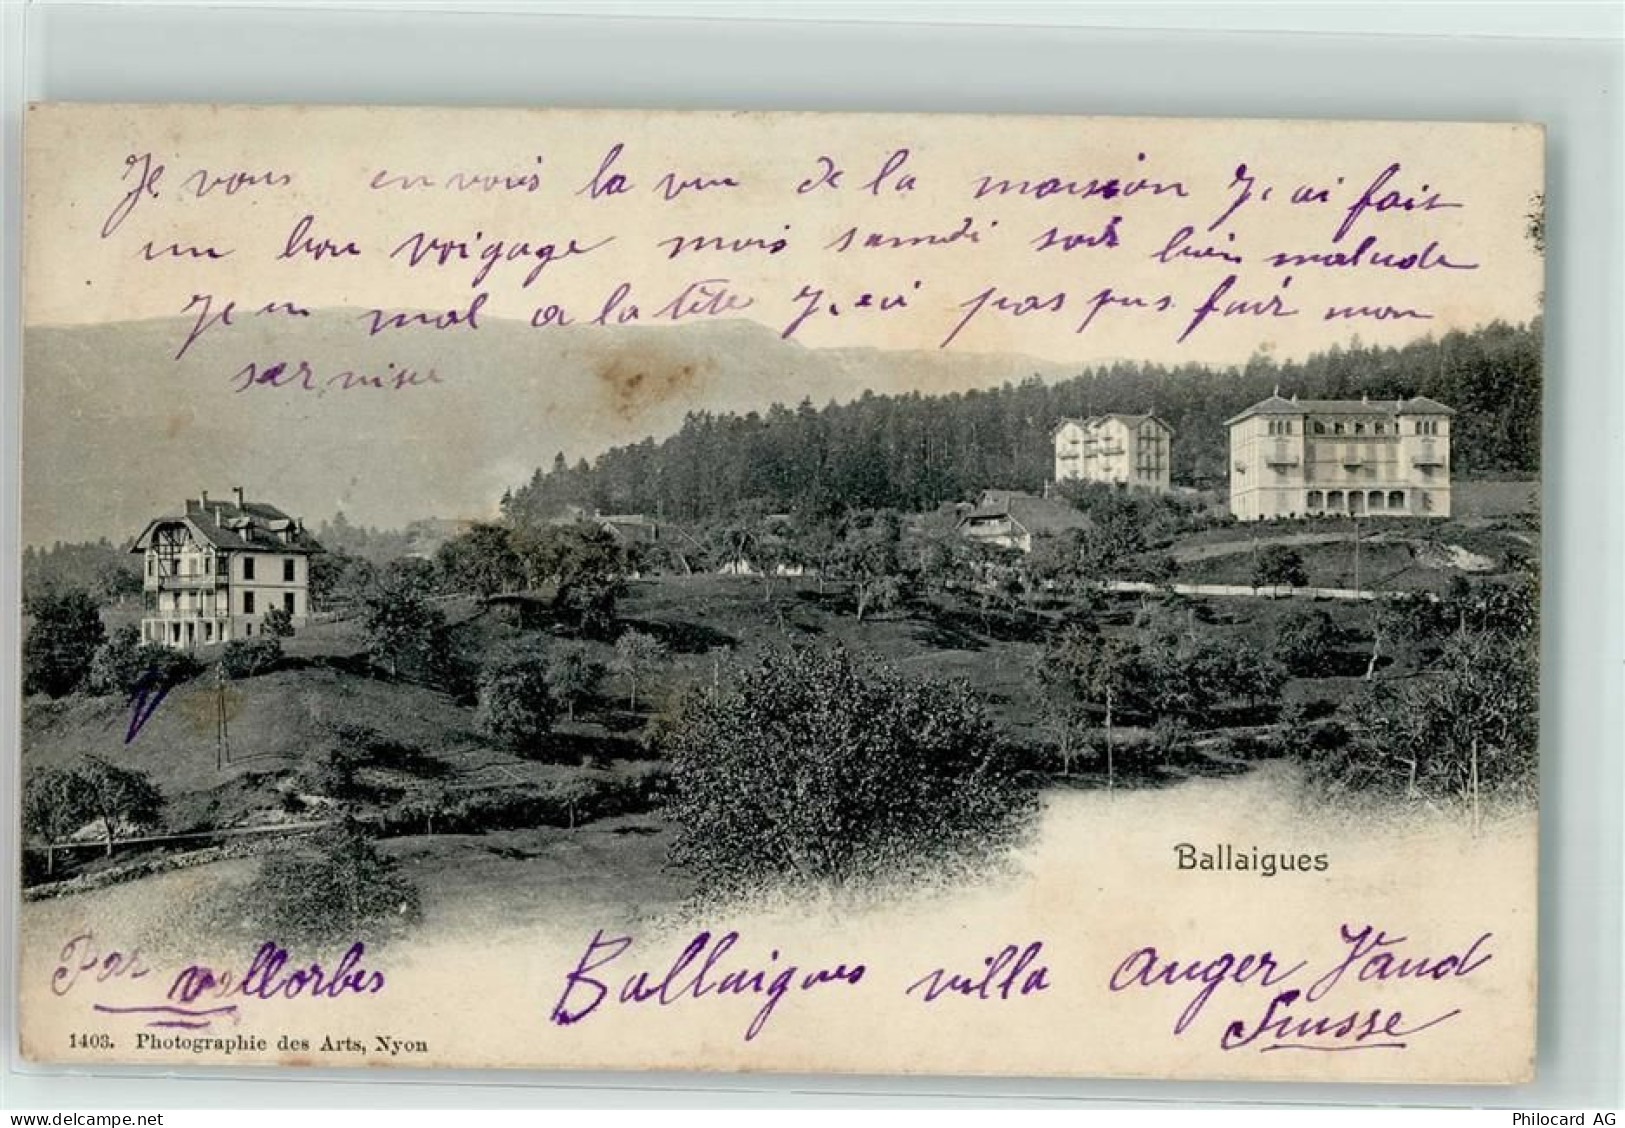 Je vous envois la vue de la maision J, ai fais
un bon voigage mais samdi soir bien malade
Je un mal a la tête J, ai pas pus fair mon
servise
Ballaigues
Par vallorbes
Ballaigues villa auger Vaud
Suisse
1403. Photographie des Arts, Nyon
www.delcampe.net
Philocard AG